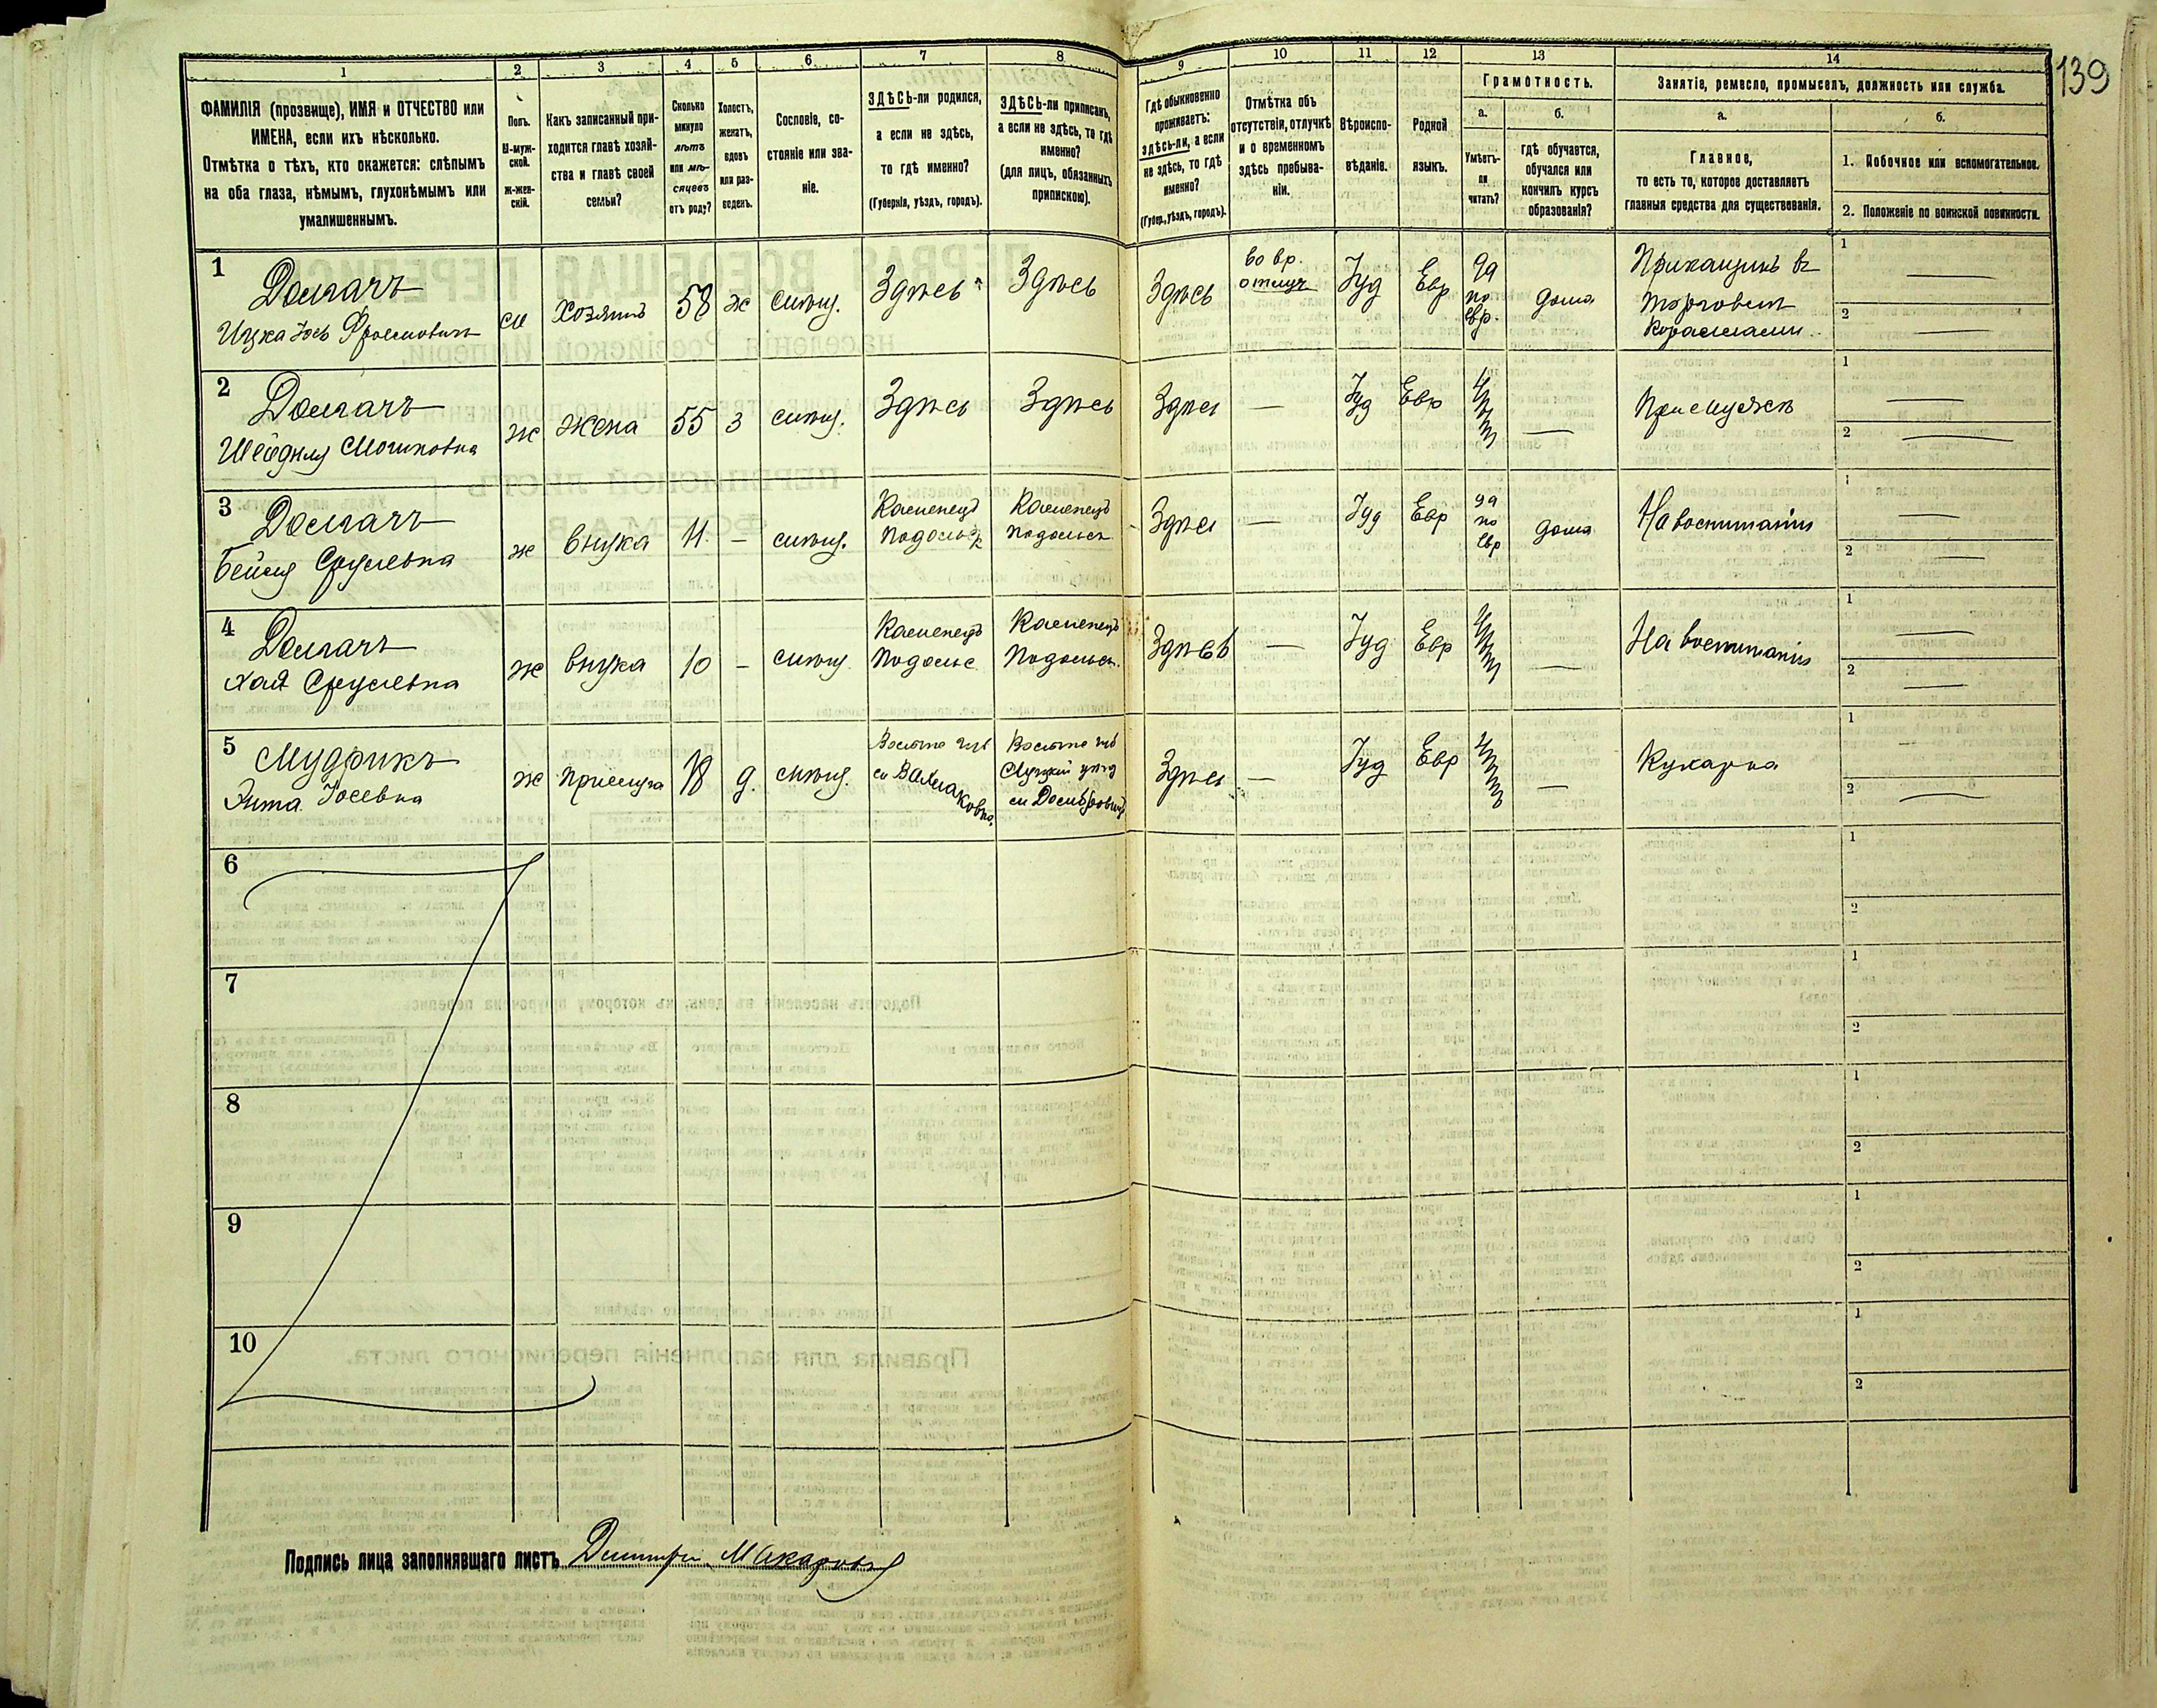 139
1 2 3 4 5 6 7 8 9 10 11 12 13 14
ФАМИЛІЯ (прозвище), ИМЯ и ОТЧЕСТВО или
ИМЕНА, если ихъ нѣсколько.
Отмѣтка о тѣхъ, кто окажется: слѣпымъ
на оба глаза, нѣмымъ, глухонѣмымъ или
умалишеннымъ.
Полъ.
М-муж-
ской.
Ж-жен-
скій.
Какъ записанный при-
ходится главѣ хозяй-
ства и главѣ своей
семьи?
Сколько
минуло
лѣтъ
или мѣ-
сяцевъ
отъ роду?
Холостъ,
женатъ,
вдовъ
или раз-
веденъ.
Сословіе, со-
стояніе или зва-
ніе.
ЗДѢСЬ-ли родился,
а если не здѣсь,
то гдѣ именно?
(Губернія, уѣздъ, городъ).
ЗДѢСЬ-ли приписанъ,
а если не здѣсь, то гдѣ
именно?
(для лицъ, обязанныхъ
припискою).
Гдѣ обыкновенно
проживаетъ:
здѣсь-ли, а если
не здѣсь, то гдѣ
именно?
(Губер., уѣздъ, городъ).
Отмѣтка объ
отсутствіи, отлучкѣ
и о временномъ
здѣсь пребыва-
ніи.
Вѣроиспо-
вѣданіе.
Родной
языкъ.
Грамотность.
а.
Умѣетъ-
ли
читать?
б.
гдѣ обучается,
обучался или
кончилъ курсъ
образованія?
Занятіе, ремесло, промыселъ, должность или служба.
а.
Главное,
то есть то, которое доставляетъ
главныя средства для существованія.
б.
1. Побочное или вспомогательное.
2. Положеніе по воинской повинности.
1
Долгачъ
Ицка Іось Фроимовичъ
м
хозяинъ
58
ж
мѣщ.
Здѣсь
Здѣсь
Здѣсь
во вр.
отлуч
Іуд
Евр
да
по
евр.
дома
Прикащикъ въ
торговли
1
2
2
Долгачъ
Шейдля Мошковна
ж
жена
55
з
мѣщ.
Здѣсь
Здѣсь
Здѣсь
—
Іуд
Евр
—
При мужѣ
1
2
3
Долгачъ
Бейля Сруслевна
ж
внука
11
—
мѣщ.
Каменецъ
Подольск
Каменецъ
Подольск
Здѣсь
—
Іуд
Евр
да
по
евр
дома
На воспитаніи
1
2
4
Долгачъ
Хая Сруслевна
ж
внука
10
—
мѣщ
Каменецъ
Подольс
Каменецъ
Подольск.
Здѣсь
—
Іуд
Евр
—
На воспитаніи
1
2
5
Мудрикъ
Іосевна
ж
прислуга
18
д.
мѣщ.
Здѣсь
—
Іуд
Евр
—
Кухарка
1
2
6
1
2
7
1
2
8
1
2
9
1
2
10
1
2
Подпись лица заполнявшаго листъ Дмитри Макаровъ